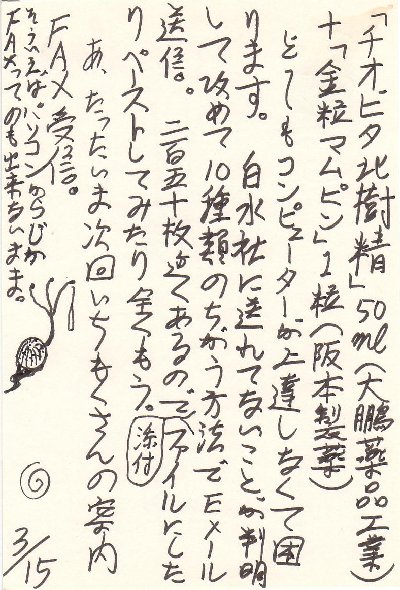 「チオビタ北樹精」50ml(大鵬薬品工業)
+「金粒マムピン」1粒(阪本製薬)
どーもコンピューターが上達しなくて困
ります。白水社に送れてないことが判明
して攻めて10種類のちがう方法でEメール
送信。二百五十枚近くあるのでファイルにした
りペーストしてみたり全くもう。
添付
あ、たったいま次回いちもくさんの案内
FAX受信。
そういえば、パソコンからじか
FAXってのも出来ないまま。
3/15